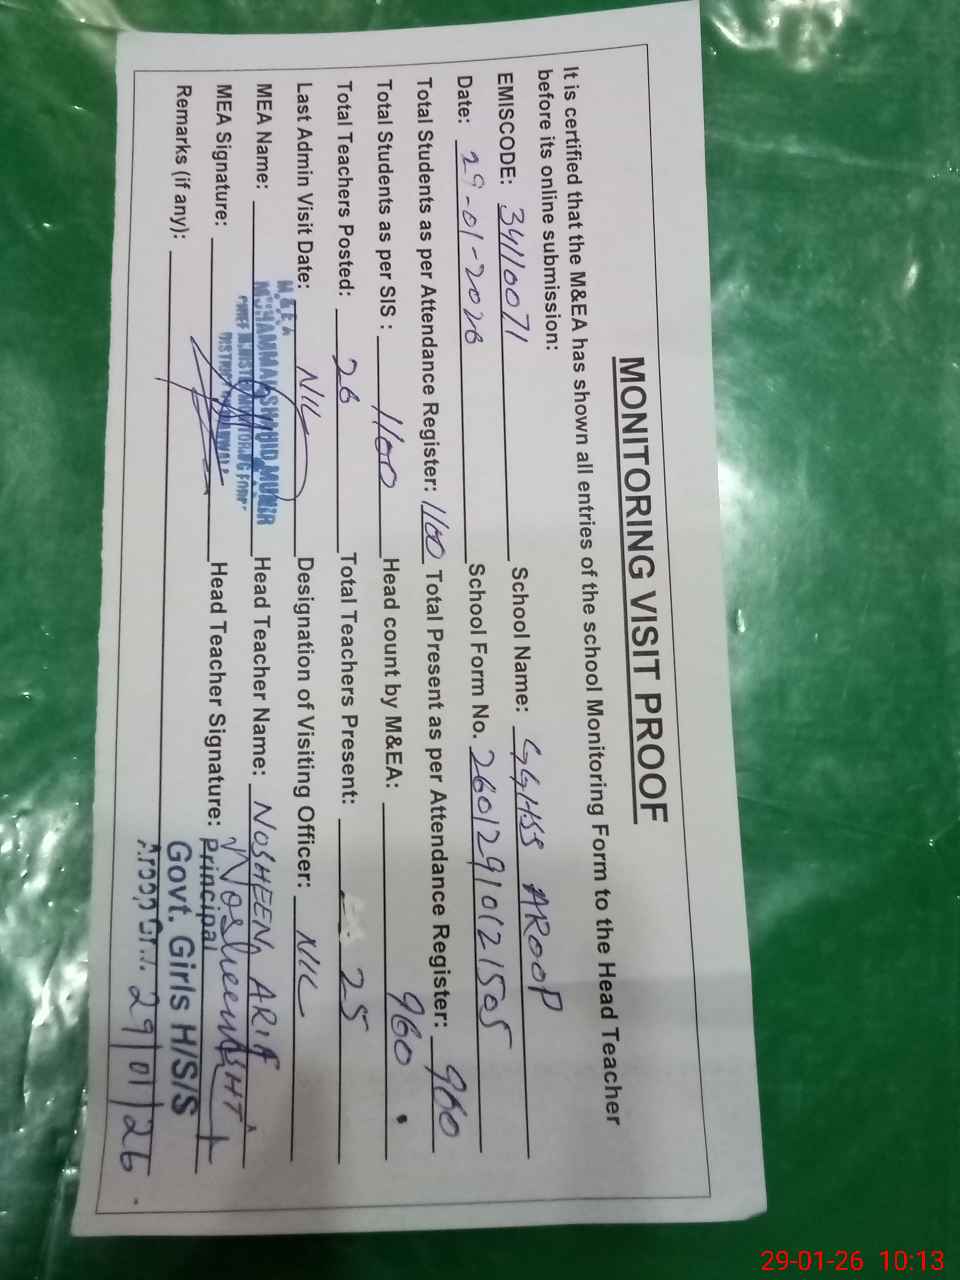 MONITORING VISIT PROOF
It is certified that the M&EA has shown all entries of the school Monitoring Form to the Head Teacher
before its online submission:
EMISCODE: 34110071 School Name: GGHSS AROOP
Date: 29-01-2026 School Form No. 26012910121505
Total Students as per Attendance Register: 1100 Total Present as per Attendance Register: 960
Total Students as per SIS : 1100 Head count by M&EA: 960
Total Teachers Posted: 26 Total Teachers Present: 25
Last Admin Visit Date: NIL Designation of Visiting Officer: NIL
M&EA
MEA Name: MUHAMMAD SHAHID MUNIR Head Teacher Name: NOSHEEN ARIF
CHIEF MINISTER MONITORING FORCE
MEA Signature: DISTRICT Head Teacher Signature: Nosheen
Principal
Remarks (if any): Govt. Girls H/S/S
Aroop 29/01/26
29-01-26 10:13